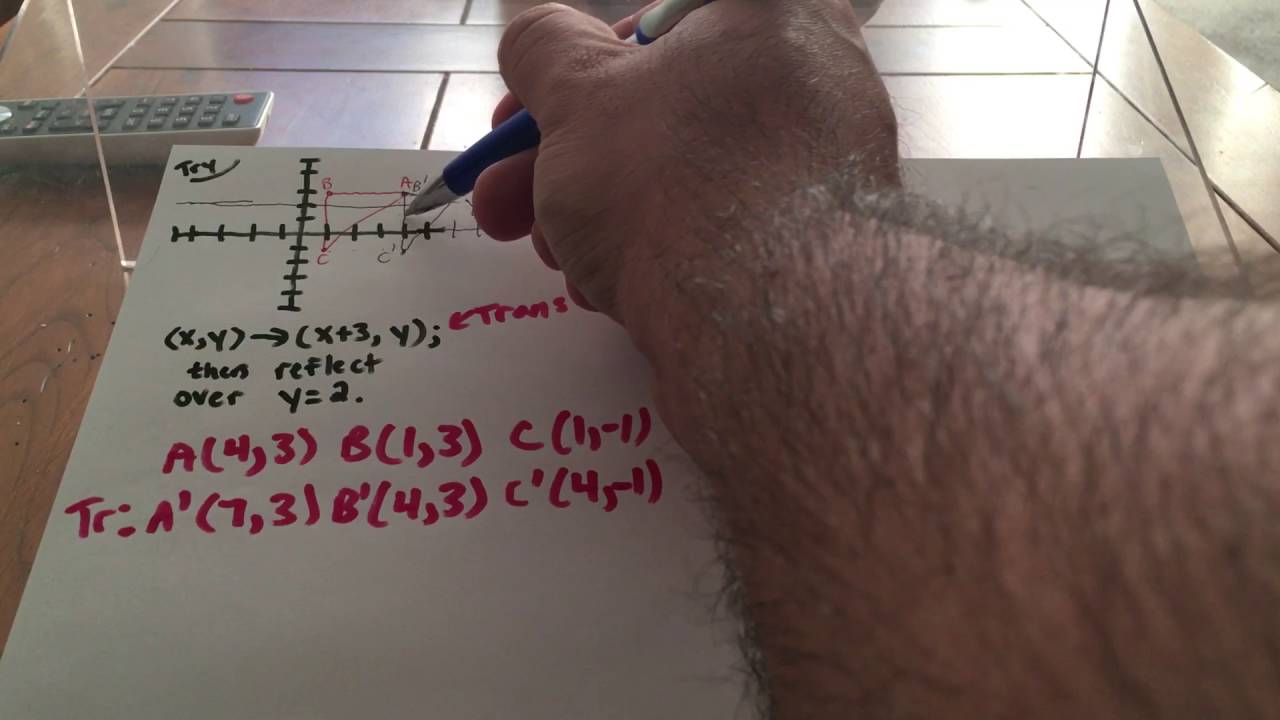 Try
B A B'
C C'
(x,y)→(x+3, y); ←Trans
then reflect
over y=2.
A(4,3) B(1,3) C(1,-1)
Tr: A'(7,3) B'(4,3) C'(4,-1)